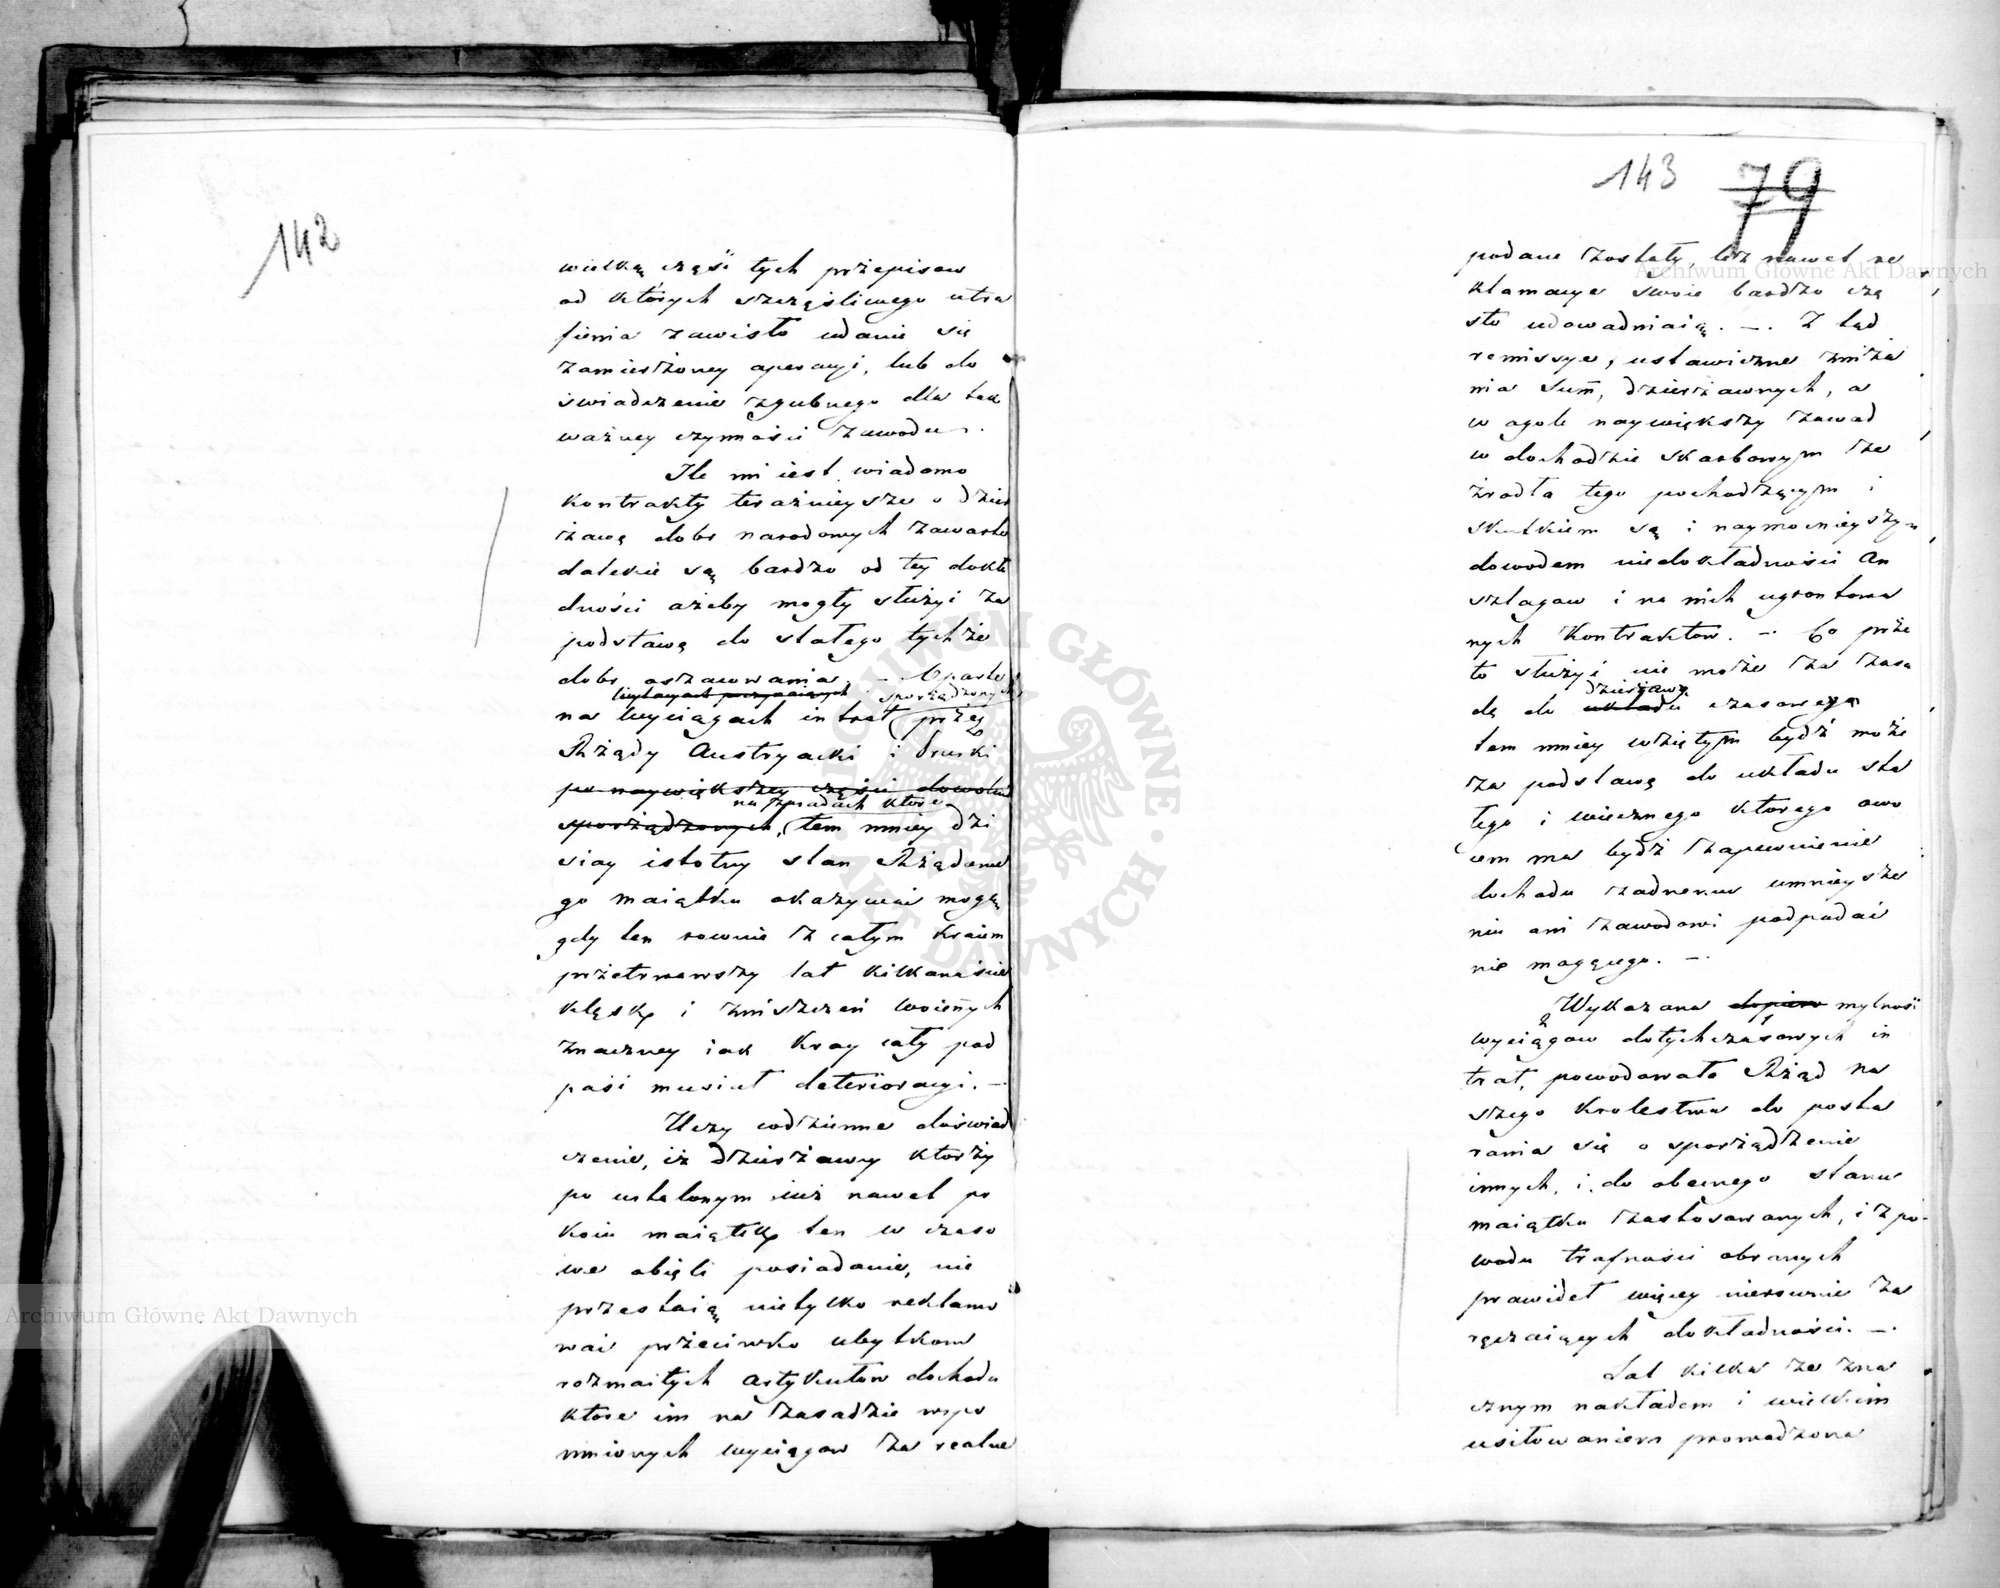 142
wielką część tych przepisow
od których szczęśliwego utra
fienia zawisło udanie się
zamierzoney operacyi, lub do
świadczenie zgubnego dla tak
ważney czynności zawodu.
Ile mi iest wiadomo
Kontrakty teraźnieysze o dzier
żawę dobr narodowych zawarte
dalekie są bardzo od tey dokła
dności ażeby mogły służyć za
podstawę do stałego tychże
dobr oszacowania. — Oparte
sporządzonych
na Wyciągach intrat przez
Rządy Austryacki i Pruski
po naywiększey części dowolnie
na zasadach które
sporządzonych, tem mniey dzi
siay istotny stan Rządowe
go maiątku okazywać mogą
gdy ten rownie z całym Kraiem
przetrwawszy lat kilkanaście
klęsk i zniszczeń woiennych
znaczney iak Kray cały pod
paść musiał deterioracyi. —
Uczy codzienne doświad
czenie, iż dzierżawcy którzy
po ustalonym iuż nawet po
koiu maiątek ten w czaso
we obięli posiadanie, nie
przestaią nietylko reklamo
wać przeciwko ubytkom
rozmaitych Artykułów dochodu
które im na zasadzie wspo
mnionych wyciągow za realne
143 79
podane zostały, lecz nawet re
klamacye swoie bardzo czę
sto udowadniaią. — Z tąd
remissye, ustawiczne zniża
nia Summ, dzierżawnych, a
w ogole naywiększy zawod
w dochodzie skarbowym ze
źrodła tego pochodzącym i
skutkiem są i naymocnieyszym
dowodem niedokładności An
szlagow i na nich ugruntowa
nych Kontraktow. — Co prze
to służyć nie może za zasa
dzierżawy
dę do układu czasowego
tem mniey wziętym bydź może
za podstawę do układu sta
łego i wiecznego którego owo
cem ma bydź zapewnienie
dochodu żadnemu umnieysze
niu ani zawodowi podpadać
nie mogącego. —
Wykazana dopiero mylność
wyciągow dotychczasowych in
trat, powodowała Rząd na
szego Krolestwa do posta
rania się o sporządzenie
innych, i do obecnego stanu
maiątku zastosowanych, i z po-
wodu trafności obranych
prawideł więcey nierownie za
ręczaiących dokładności. —
Lat kilka ze zna
cznym nakładem i wielkim
usiłowaniem prowadzona